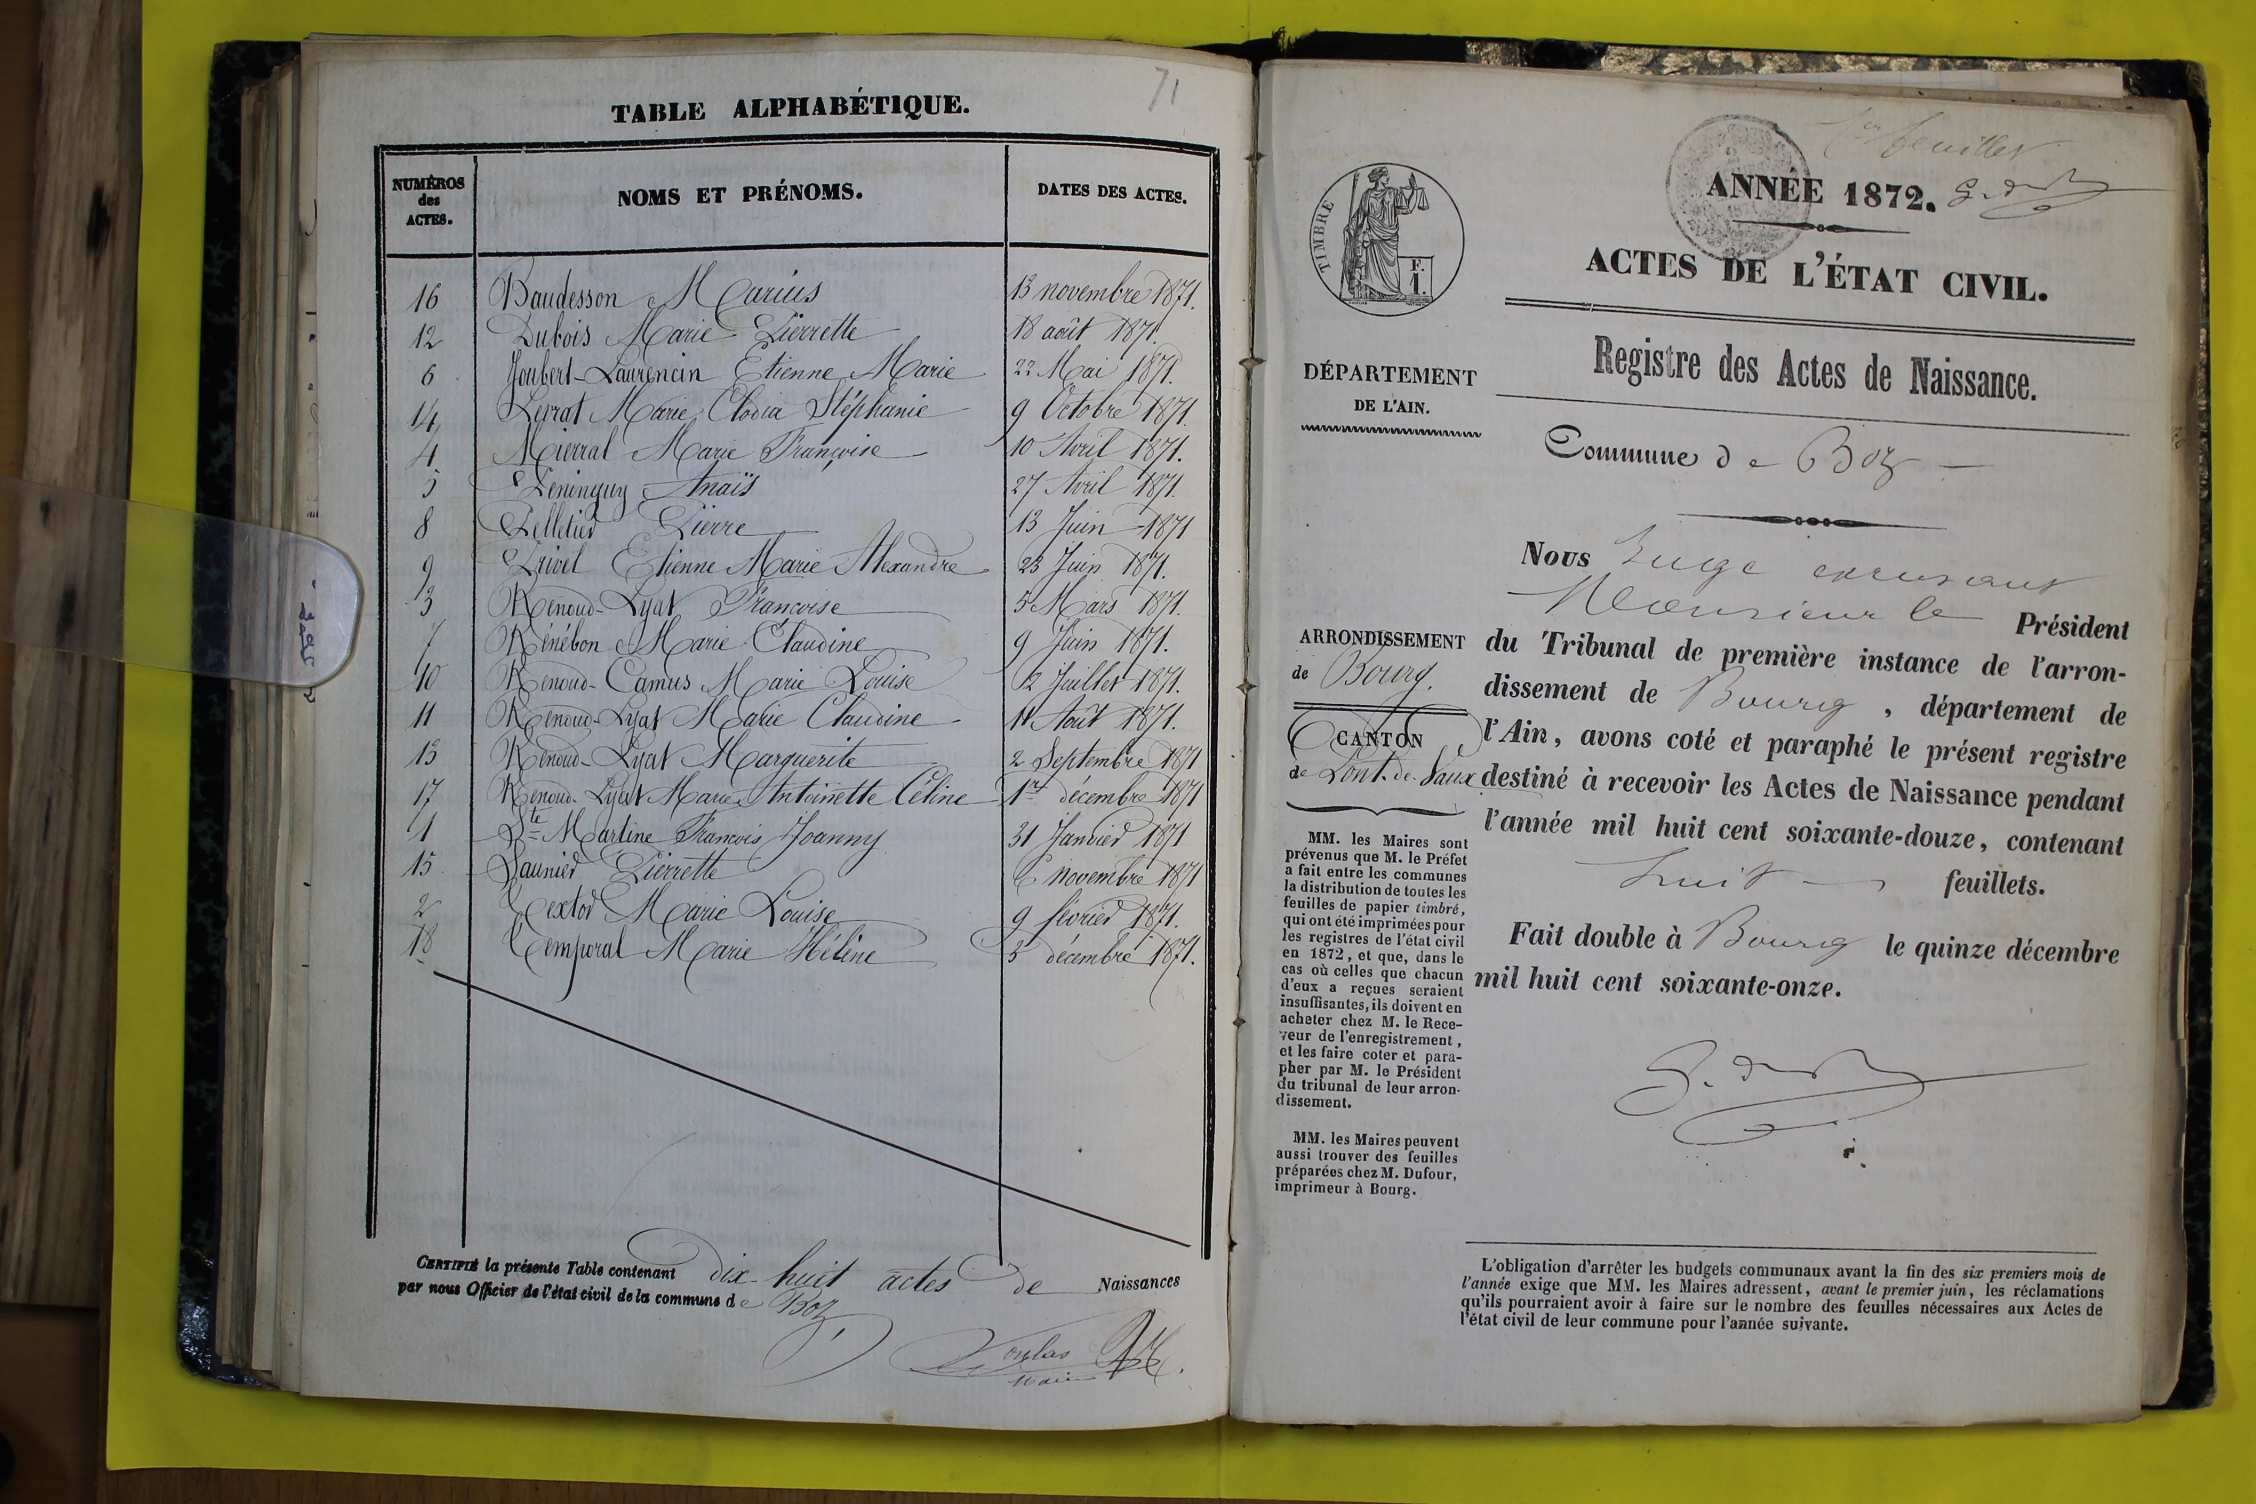 71
TABLE ALPHABÉTIQUE.
NUMÉROS des ACTES.
NOMS ET PRÉNOMS.
DATES DES ACTES.
16 Baudesson Marius 13 novembre 1871.
12 Dubois Marie Pierrette 18 août 1871.
6 Joubert-Laurencin Etienne Marie 22 Mai 1871.
14 Leyrat Marie Clodia Stéphanie 9 Octobre 1871.
4 Mierral Marie Françoise 10 Avril 1871.
5 Péninguy Anaïs 27 Avril 1871.
8 Pelletier Pierre 13 Juin 1871
9 Privel Etienne Marie Alexandre 23 Juin 1871.
3 Renoud-Lyat Françoise 5 Mars 1871.
7 Rénébon Marie Claudine 9 Juin 1871.
10 Renoud-Camus Marie Louise 12 Juillet 1871.
11 Renoud-Lyat Marie Claudine 11 Août 1871.
13 Renoud-Lyat Marguerite 2 Septembre 1871
17 Renoud-Lyat Marie Antoinette Céline 1er décembre 1871
1 Ste Martine François Joanny 31 Janvier 1871
15 Saunier Pierrette 6 novembre 1871
2 Textor Marie Louise 9 février 1871.
18 Temporal Marie Hélène 5 décembre 1871.
CERTIFIÉ la présente Table contenant dix-huit actes de Naissances
par nous Officier de l'état civil de la commune de Boz
maire
1er feuillet
ANNÉE 1872.
TIMBRE
F.
1.
ACTES DE L'ÉTAT CIVIL.
Registre des Actes de Naissance.
DÉPARTEMENT
DE L'AIN.
Commune de Boz
ARRONDISSEMENT
de Bourg.
CANTON
de Pont-de-Vaux
MM. les Maires sont
prévenus que M. le Préfet
a fait entre les communes
la distribution de toutes les
feuilles de papier timbré,
qui ont été imprimées pour
les registres de l'état civil
en 1872, et que, dans le
cas où celles que chacun
d'eux a reçues seraient
insuffisantes, ils doivent en
acheter chez M. le Rece-
veur de l'enregistrement,
et les faire coter et para-
pher par M. le Président
du tribunal de leur arron-
dissement.
MM. les Maires peuvent
aussi trouver des feuilles
préparées chez M. Dufour,
imprimeur à Bourg.
Nous Juge
Monsieur le Président
du Tribunal de première instance de l'arron-
dissement de Bourg, département de
l'Ain, avons coté et paraphé le présent registre
destiné à recevoir les Actes de Naissance pendant
l'année mil huit cent soixante-douze, contenant
huit feuillets.
Fait double à Bourg le quinze décembre
mil huit cent soixante-onze.
L'obligation d'arrêter les budgets communaux avant la fin des six premiers mois de
l'année exige que MM. les Maires adressent, avant le premier juin, les réclamations
qu'ils pourraient avoir à faire sur le nombre des feuilles nécessaires aux Actes de
l'état civil de leur commune pour l'année suivante.